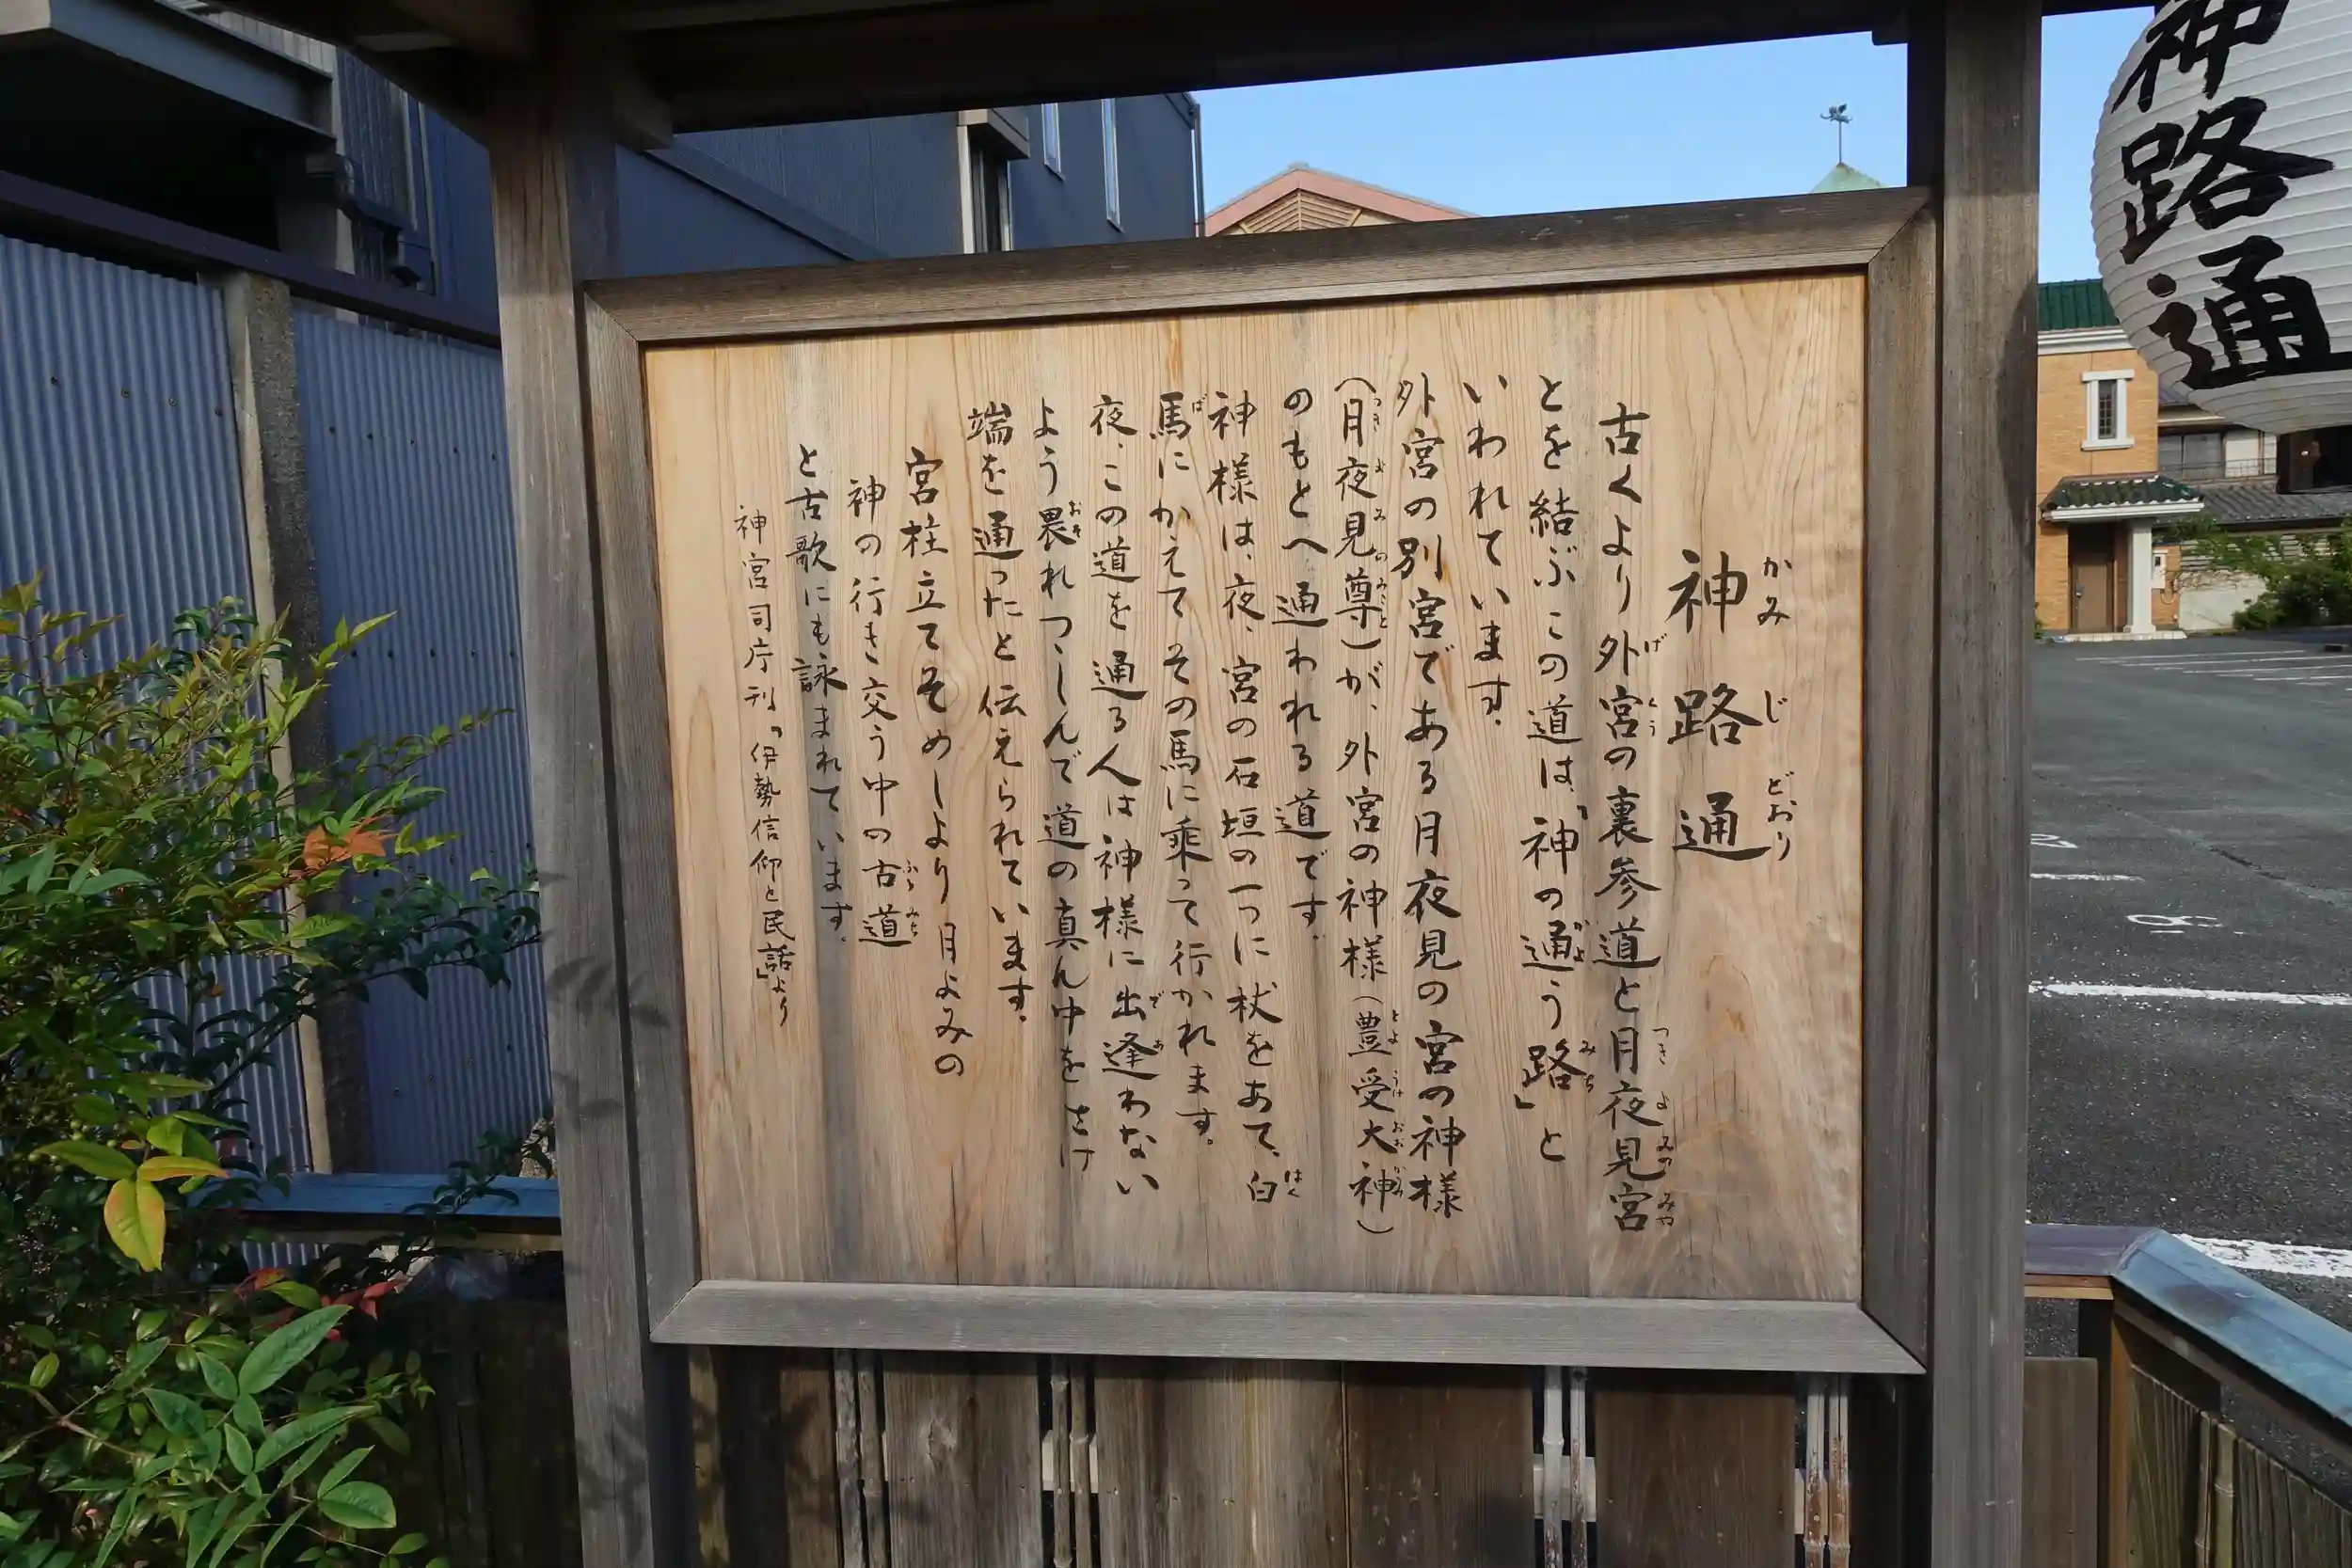 神路通
かみじどおり
古くより外宮の裏参道と月夜見宮
とを結ぶこの道は、「神の通う路」と
いわれています。
外宮の別宮である月夜見の宮の神様
(月夜見尊)が、外宮の神様(豊受大神)
のもとへ通われる道です。
神様は、夜、宮の石垣の一つに杖をあて、白
馬にかえてその馬に乗って行かれます。
夜、この道を通る人は神様に出逢わない
よう畏れつゝしんで道の真ん中をさけ
端を通ったと伝えられています。
宮柱立てそめしより月よみの
神の行き交う中の古道
と古歌にも詠まれています。
神宮司庁刊「伊勢信仰と民話」より
神路通